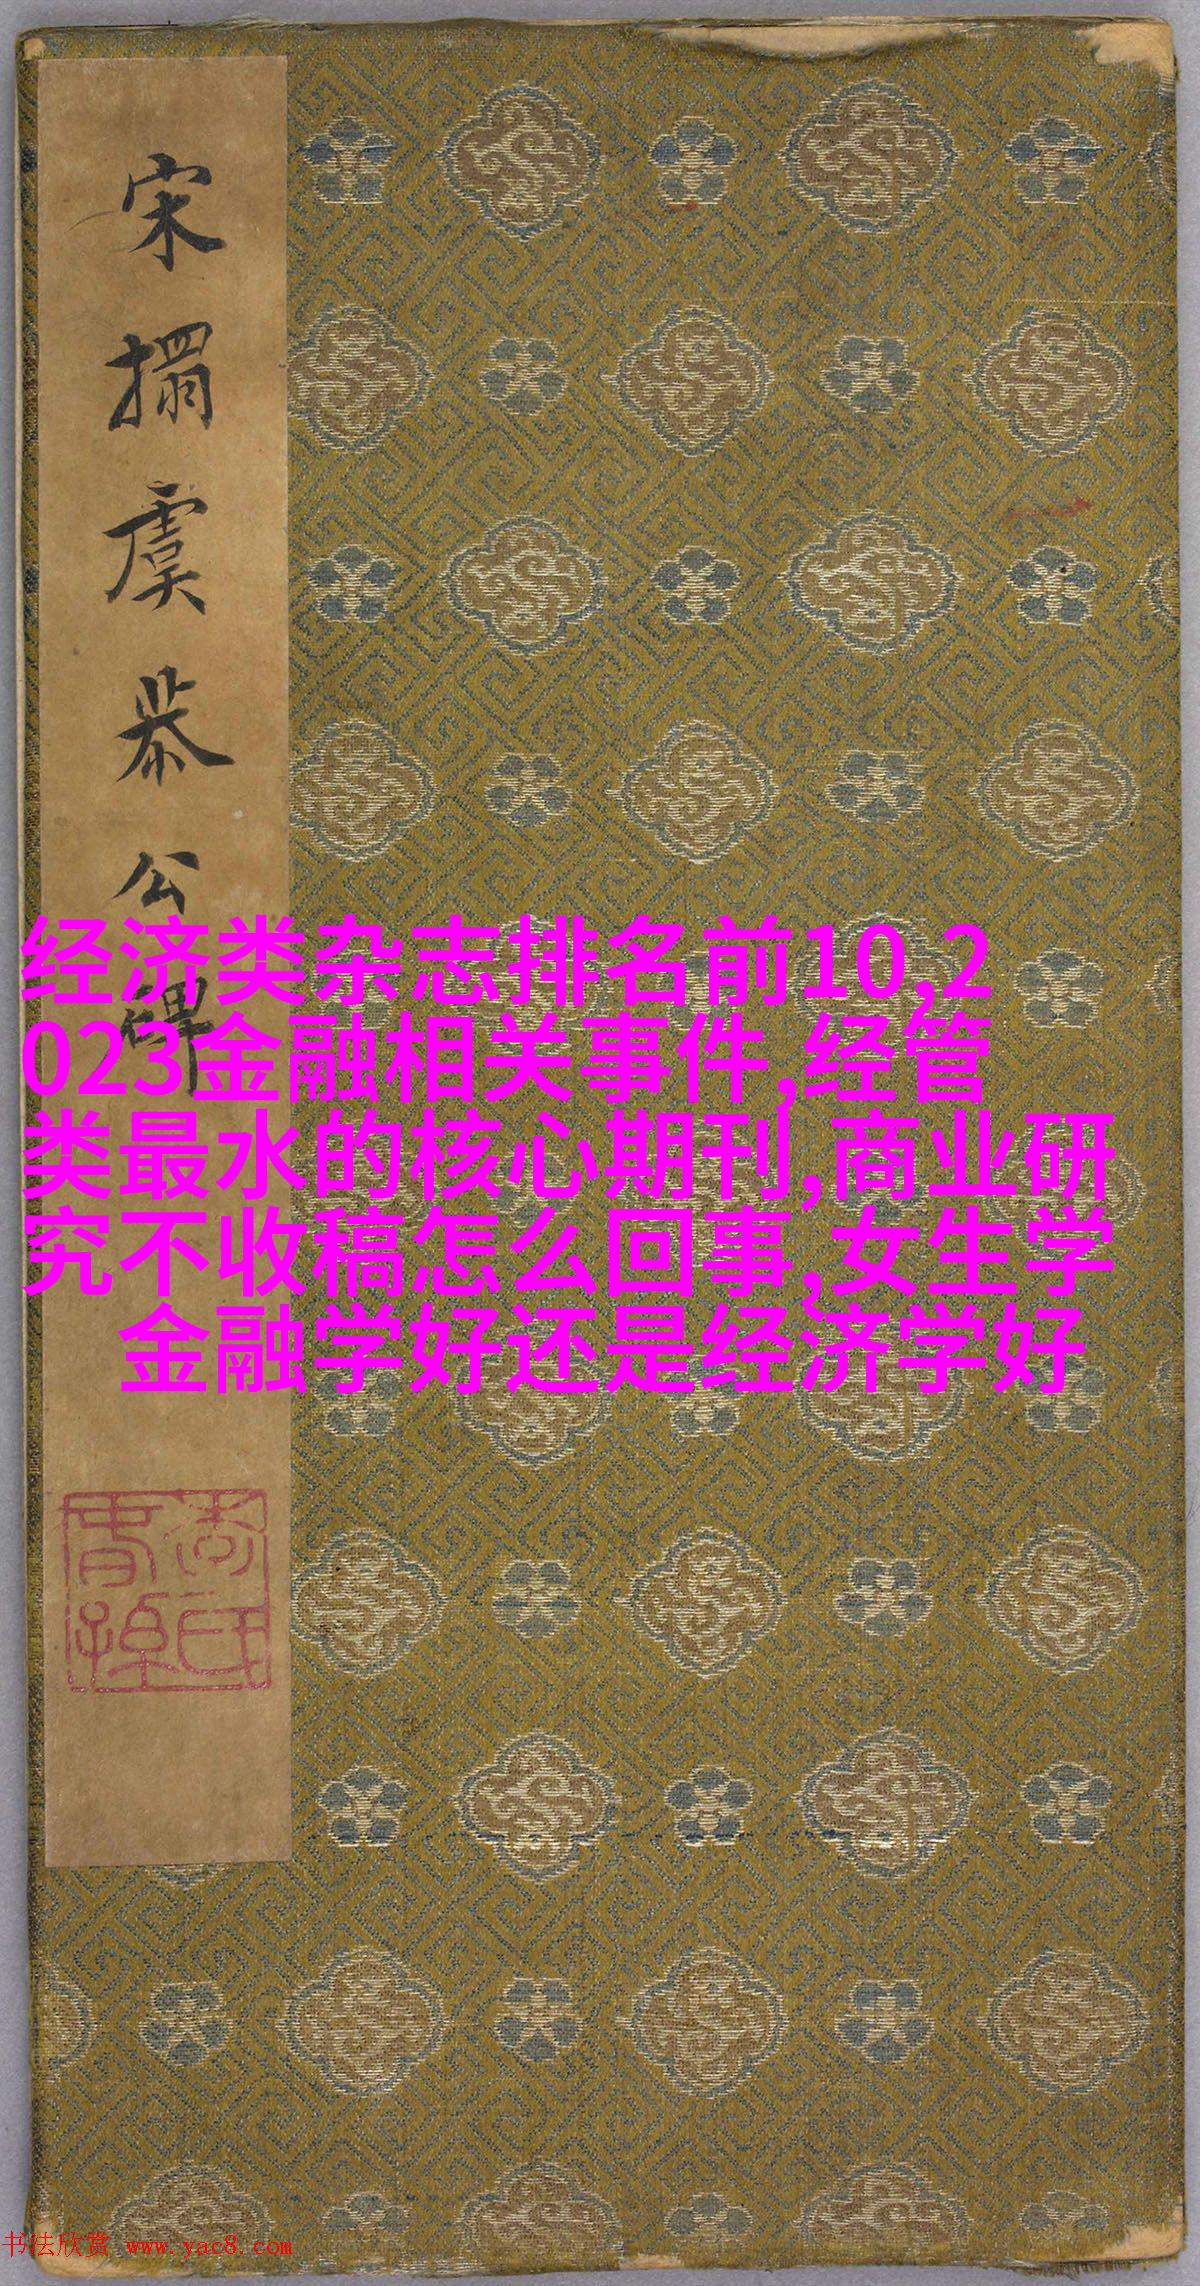 宋搨虞恭公碑
经济类杂志排名前10,2
023金融相关事件,经管
类最水的核心期刊,商业研
究不收稿怎么回事,女生学
金融学好还是经济学好
书法欣赏 www.yac8.com